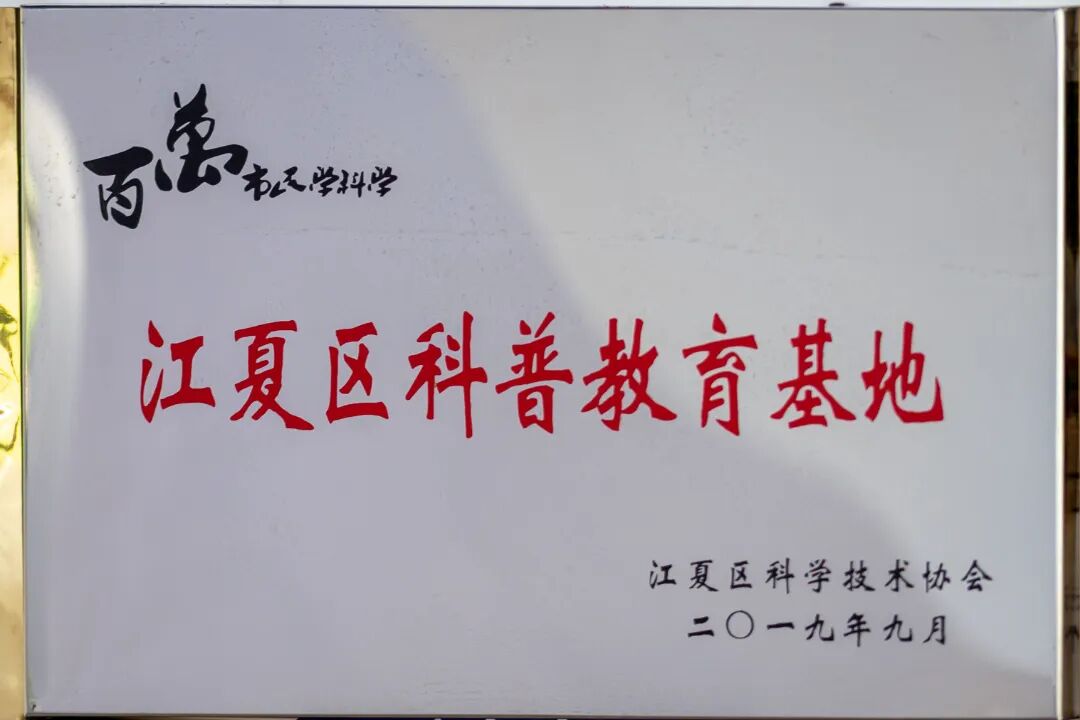 百萬市民学科学
江夏区科普教育基地
江夏区科学技术协会
二〇一九年九月